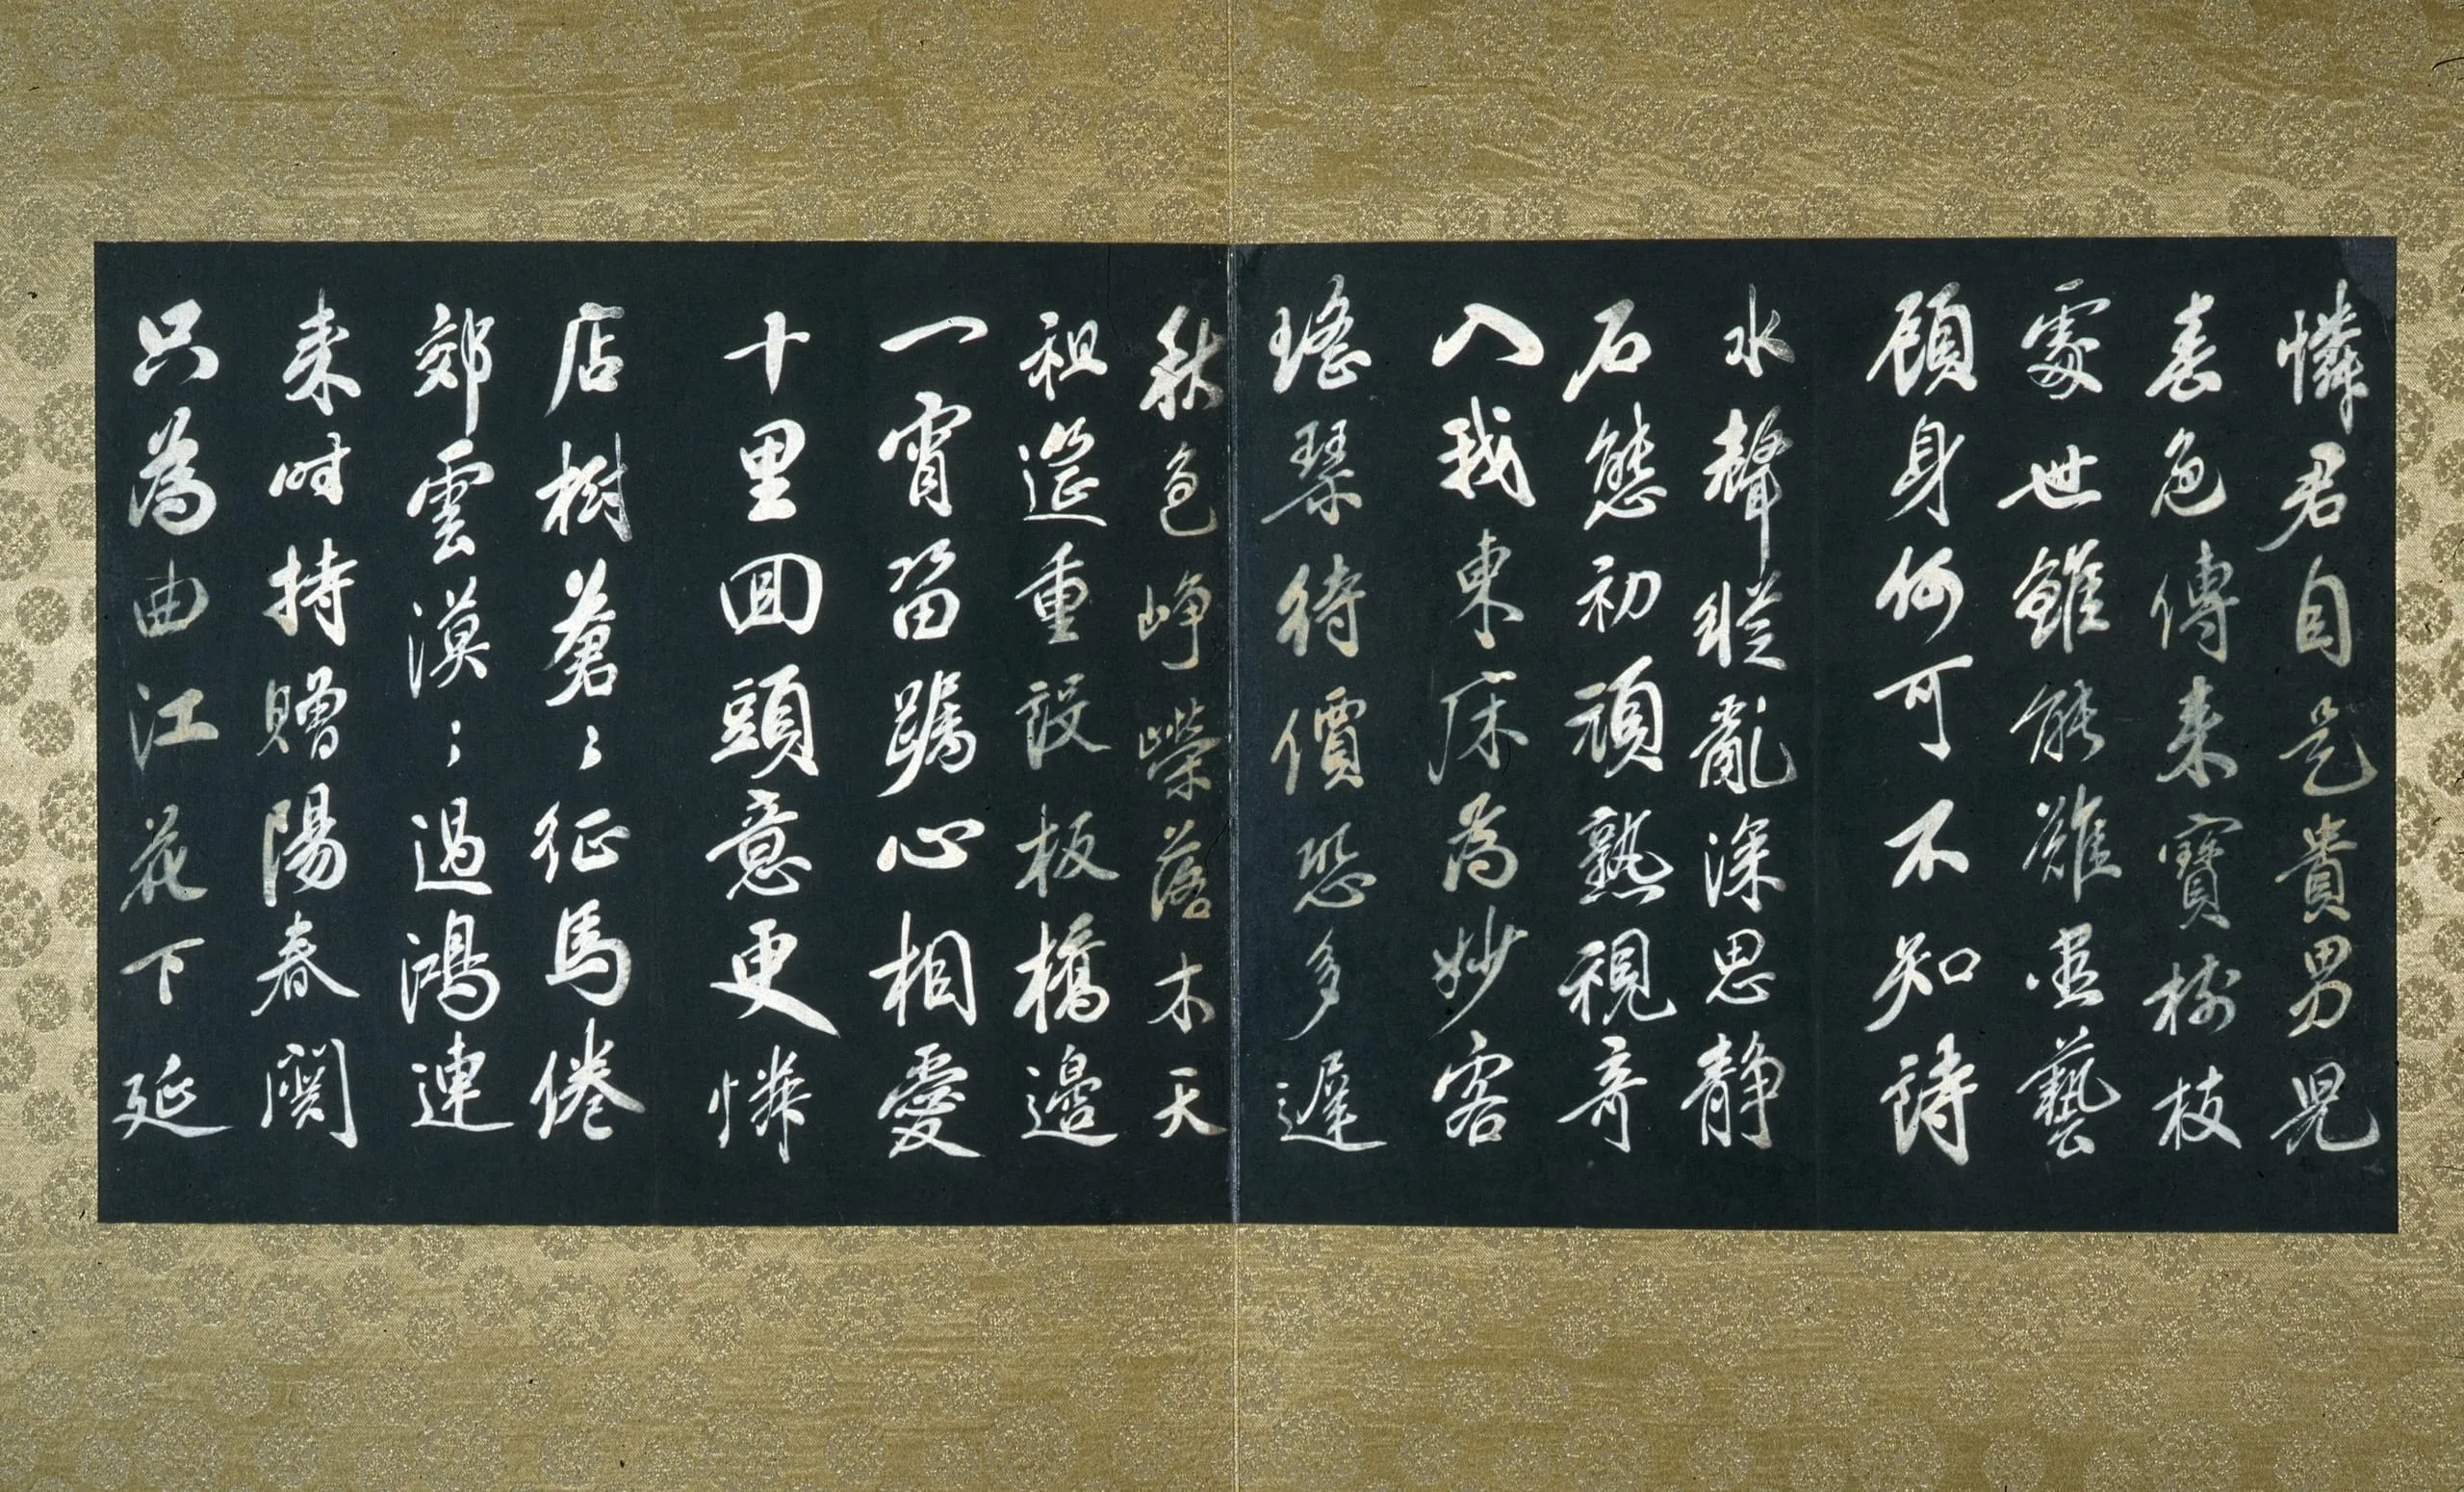 憐君自是貴男兒
春色傳來寶樹枝
處世雖能難盡藝
顧身何可不知詩
水聲縱亂深思静
石態初頑熟視奇
入我東床為妙客
瑤琴待價恐多遲
秋色崢嶸落木天
祖筵重設板橋邊
一宵留䠱心相愛
十里回頭意更憐
店樹蒼〻征馬倦
郊雲漠〻過鴻連
来時持贈陽春闋
只為曲江花下延